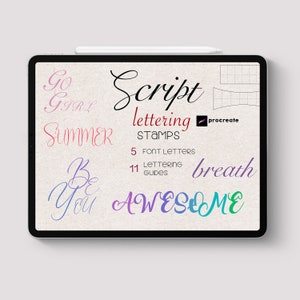 Script
lettering
procreate
STAMPS
5 FONT LETTERS
11 LETTERING GUIDES
GO
GIRL
SUMMER
BE
YOU
breath
AWESOME